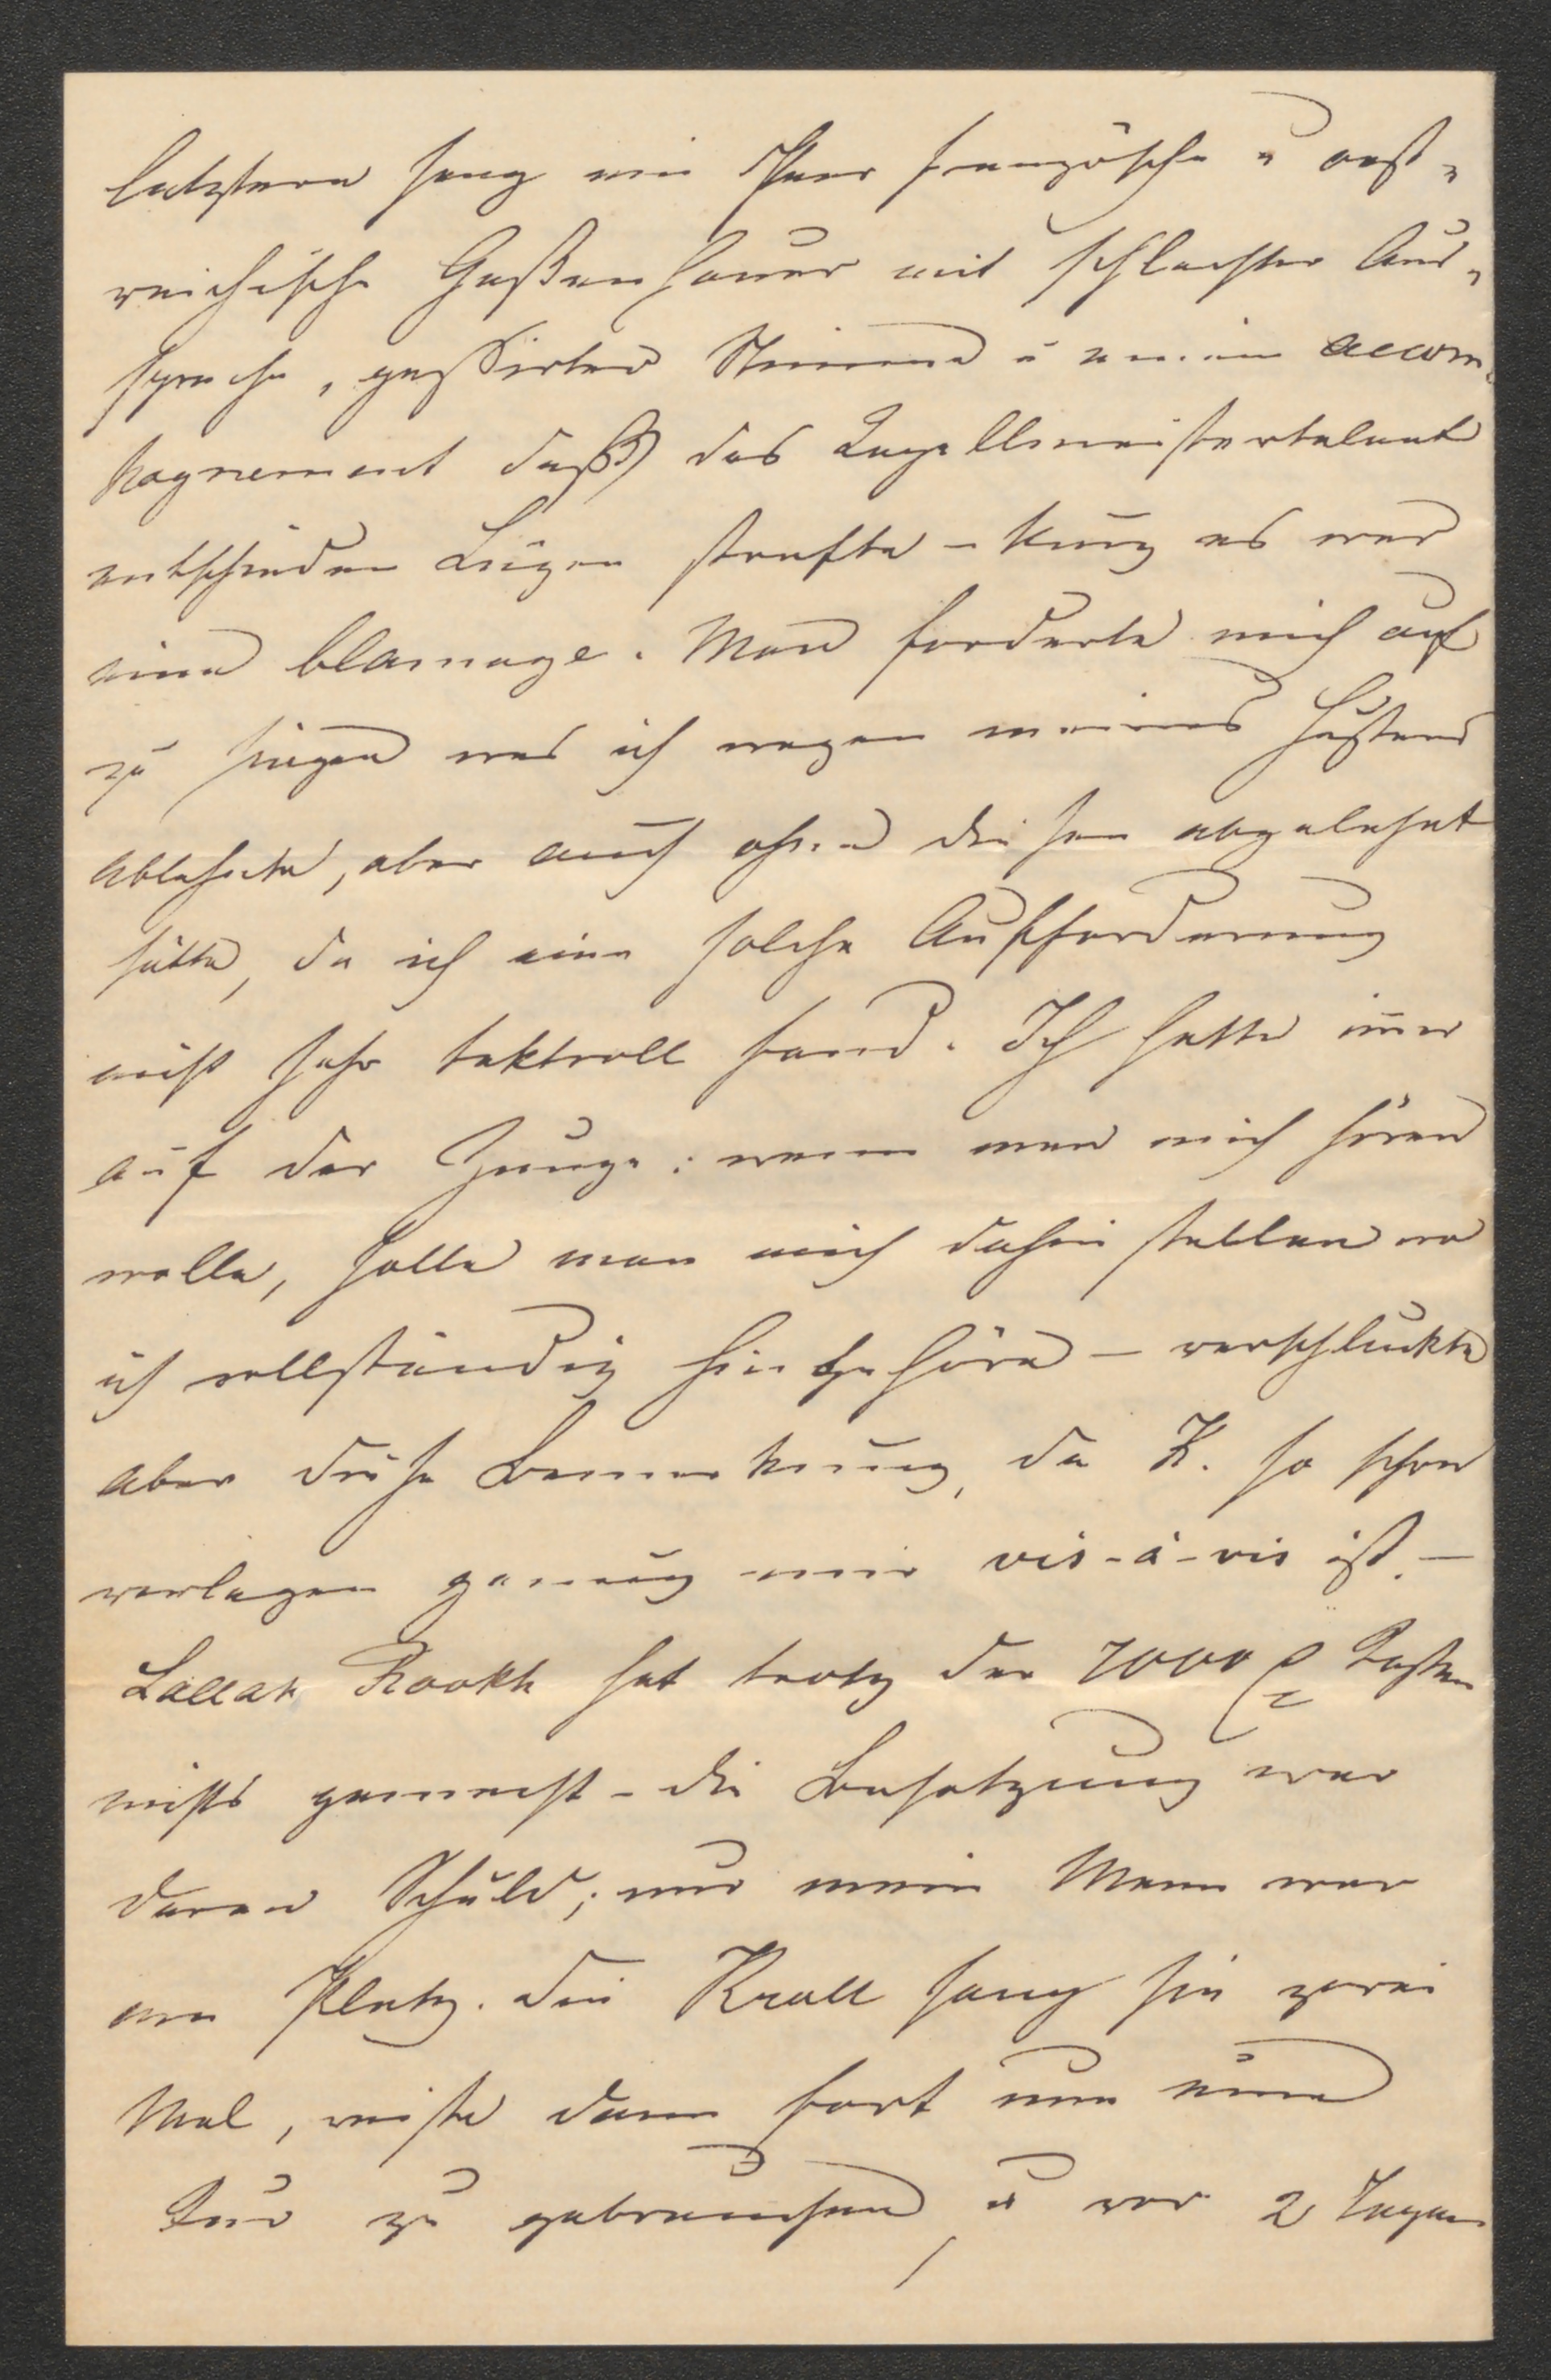 letztere sang ein Paar französche u oest-
reichische Gaßenhauer mit schlechter Aus-
sprache, Stimme u einem accom-
pagnement daß das Capellmeistertalent
entschieden Lügen strafte – kurz es war
eine blamage. Man forderte mich auf
zu singen was ich wegen meines Hustens
ablehnte, aber auch ohne diesen abgelehnt
hätte, da ich eine solche Aufforderung
nicht sehr taktvoll fand. Ich hatte immer
auf der Zunge: wenn man mich hören
wolle, solle man mich dahin stellen wo
ich vollständig hingehöre – verschluckte
aber diese Bemerkung, da K. so schon
verlegen genug mir vis-à-vis ist. –
Lallah Rookh hat trotz der 7000 Kosten
nichts gemacht – die Besetzung war
daran Schuld; nur mein Mann war
am Platz. Die Krall sang sie zwei
Mal, reiste dann fort um eine
Kur zu gebrauchen, u vor 2 Tagen